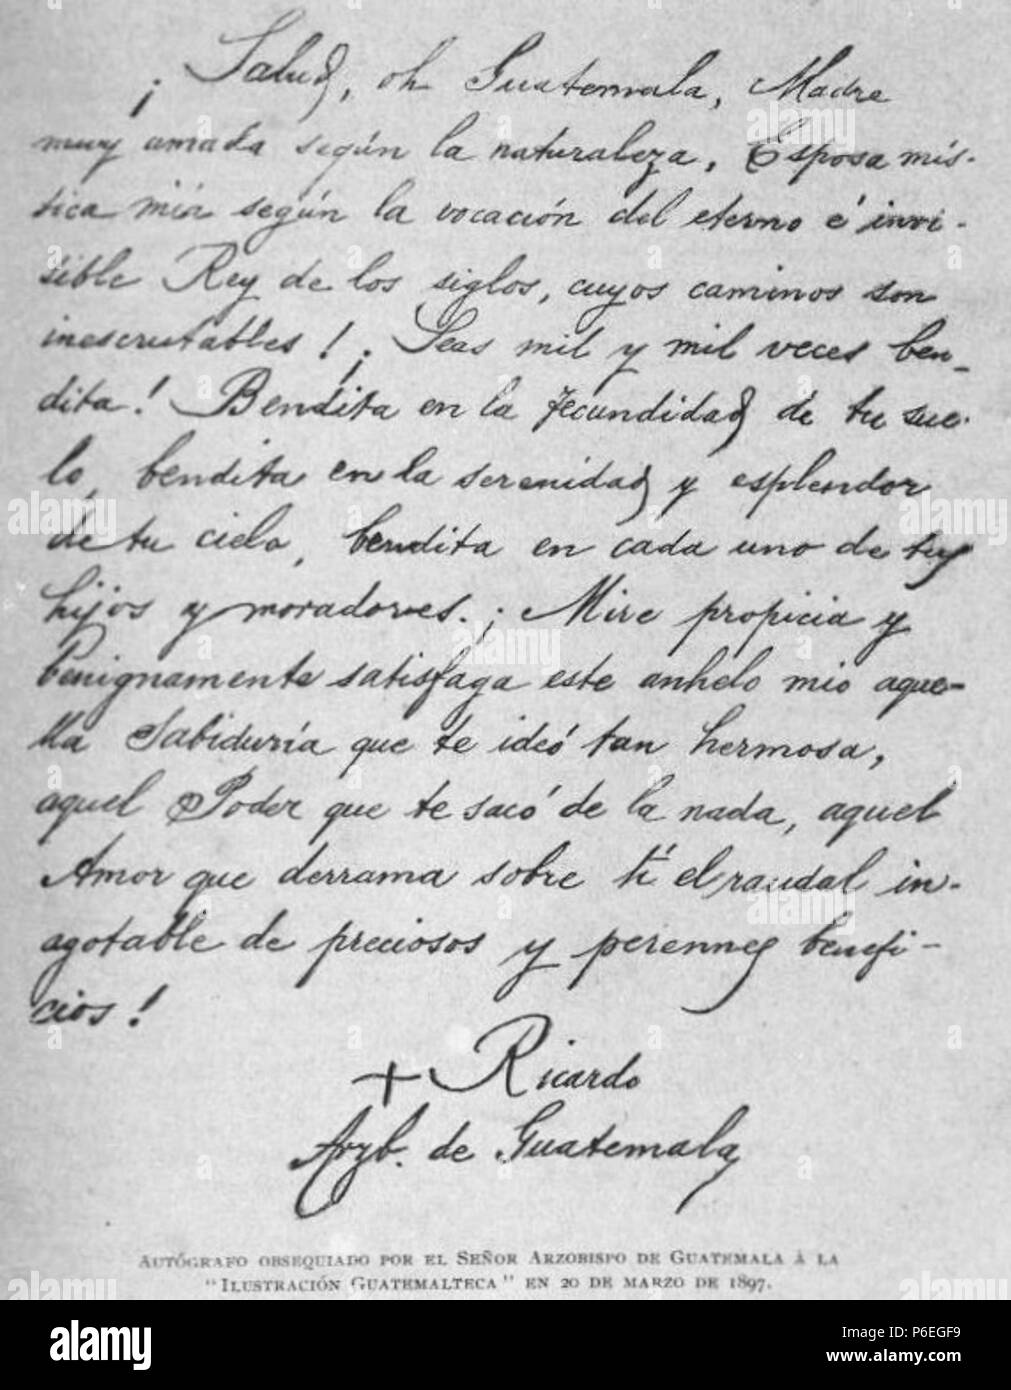 ¡Salud, oh Guatemala, Madre
muy amada según la naturaleza, Esposa mís-
tica mía según la vocación del eterno é invi-
sible Rey de los siglos, cuyos caminos son
inescrutables! ¡Seas mil y mil veces ben-
dita! Bendita en la fecundidad de tu sue-
lo, bendita en la serenidad y esplendor
de tu cielo, bendita en cada uno de tus
hijos y moradores. ¡Mire propicia y
benignamente satisfaga este anhelo mio aque-
lla Sabiduría que te ideó tan hermosa,
aquel Poder que te sacó de la nada, aquel
Amor que derrama sobre tí el raudal in-
agotable de preciosos y perennes benefi-
cios!
+ Ricardo
Arzb. de Guatemala
AUTÓGRAFO OBSEQUIADO POR EL SEÑOR ARZOBISPO DE GUATEMALA Á LA
"ILUSTRACIÓN GUATEMALTECA" EN 20 DE MARZO DE 1897.
alamy
Image ID: P6EGF9
www.alamy.com